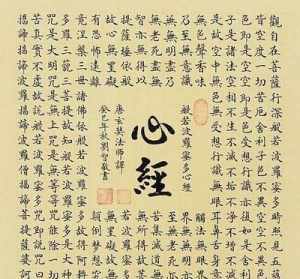 觀自在菩薩行深般若波羅蜜多時照見五蘊
皆空度一切苦厄舍利子色不異空空不異色
色即是空空即是色受想行識亦復如是舍利
子是諸法空相不生不滅不垢不淨不增不減
是故空中無色無受想行識無眼耳鼻舌身意
無色聲香味觸法無眼界
乃至無意識界無無明亦
無無明盡乃至無老死亦
無老死盡無苦集滅道無
智亦無得以無所得故菩
提薩埵依般若波羅蜜多
故心無罣礙無罣礙故無
有恐怖遠離顛倒夢想究
般若波羅蜜多心經
心經
唐玄奘法師譯
癸巳年秋劉智敬書
竟涅槃三世諸佛依般若波羅蜜多故得阿耨
多羅三藐三菩提故知般若波羅蜜多是大神
咒是大明咒是無上咒是無等等咒能除一切
苦真實不虛故說般若波羅蜜多咒即說咒曰
揭諦揭諦波羅揭諦波羅僧揭諦菩提薩婆訶